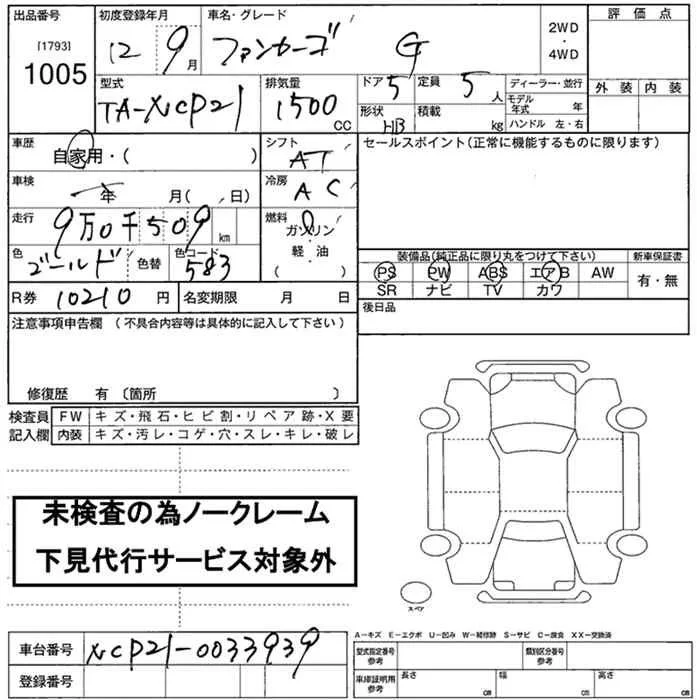 出品番号 初度登録年月 車名・グレード 評価点
[1793] 12 9月 ファンカーゴ G 2WD・4WD
1005
型式 排気量 ドア 5 定員 5人 ディーラー・並行 外装 内装
TA-NCP21 1500CC 形状 HB 積載 kg モデル年式 年
ハンドル 左・右
車歴 自家用・( ) シフト AT セールスポイント(正常に機能するものに限ります)
車検 年 月( 、日) 冷房 AC
走行 9万0千509km 燃料 ガソリン
軽・油
( )
色 ゴールド 色替 色コード 583 装備品(純正品に限り丸をつけて下さい) 新車保証書
PS PW ABS エアB AW 有・無
SR ナビ TV カワ
R券 10210円 名変期限 月 日 後日品
注意事項申告欄 (不具合内容等は具体的に記入して下さい)
修復歴 有〔箇所 〕
検査員 FW キズ・飛石・ヒビ割・リペア跡・X要
記入欄 内装 キズ・汚レ・コゲ・穴・スレ・キレ・破レ
未検査の為ノークレーム
下見代行サービス対象外
スペア
A-キズ E-エクボ U-凹み W-補修跡 S-サビ C-腐食 XX-交換済
車台番号 NCP21-0033939 型式指定番号 参考 類別区分番号 参考
登録番号 車庫証明用 参考 長さ cm 幅 cm 高さ cm